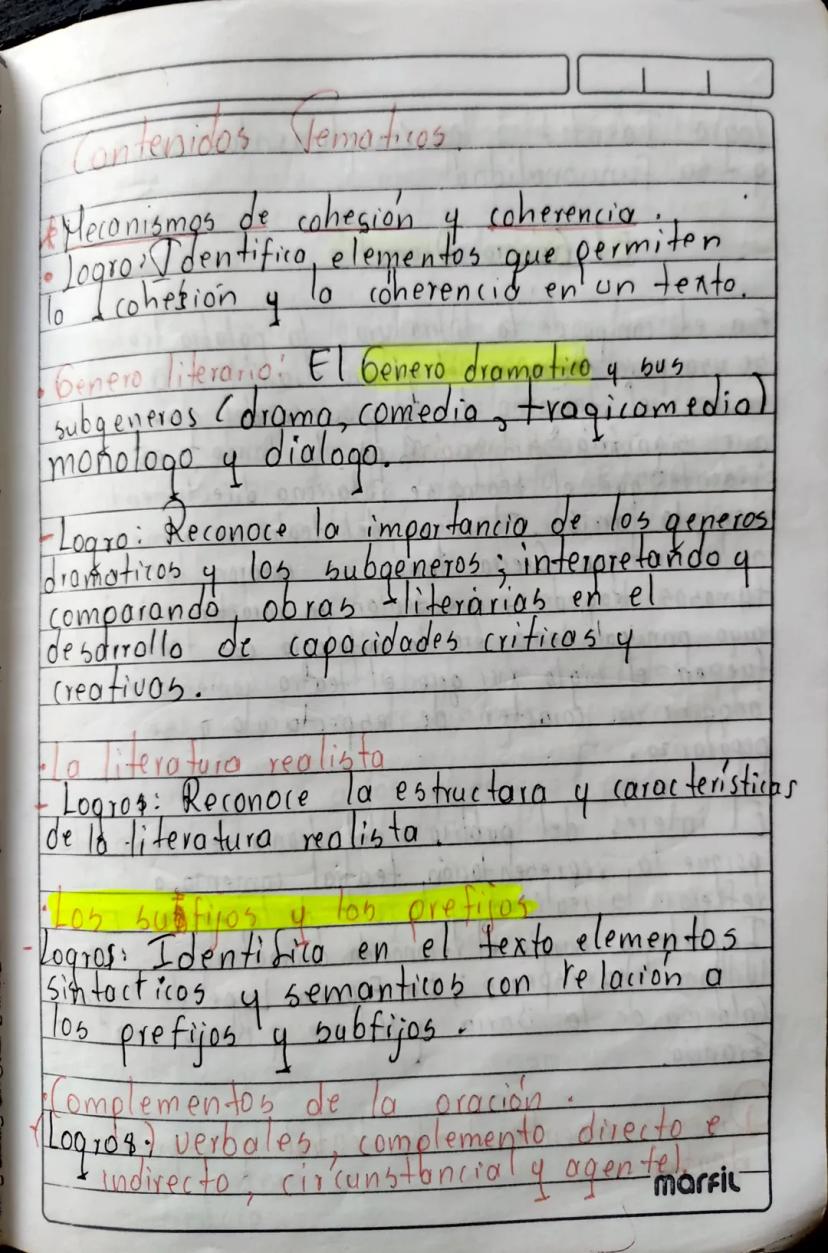 Contenidos Tematicos.
* Mecanismos de cohesión y coherencia.
• Logro: Identifica elementos que permiten
la cohesión y la coherencia en un texto.
• Genero literario: El Genero dramatico y sus
subgeneros (drama, comedia, tragicomedia)
monologo y dialogo.
- Logro: Reconoce la importancia de los generos
dramaticos y los subgeneros; interpretando y
comparando, obras literarias en el
desarrollo de capacidades criticas y
creativas.
• La literatura realista
- Logros: Reconoce la estructura y características
de la literatura realista.
• Los sufijos y los prefijos
- Logros: Identifica en el texto elementos
sintacticos y semanticos con relación a
los prefijos y subfijos.
• Complementos de la oración.
(Logros:) verbales, complemento directo e
indirecto, circunstancial y agente).
marfil